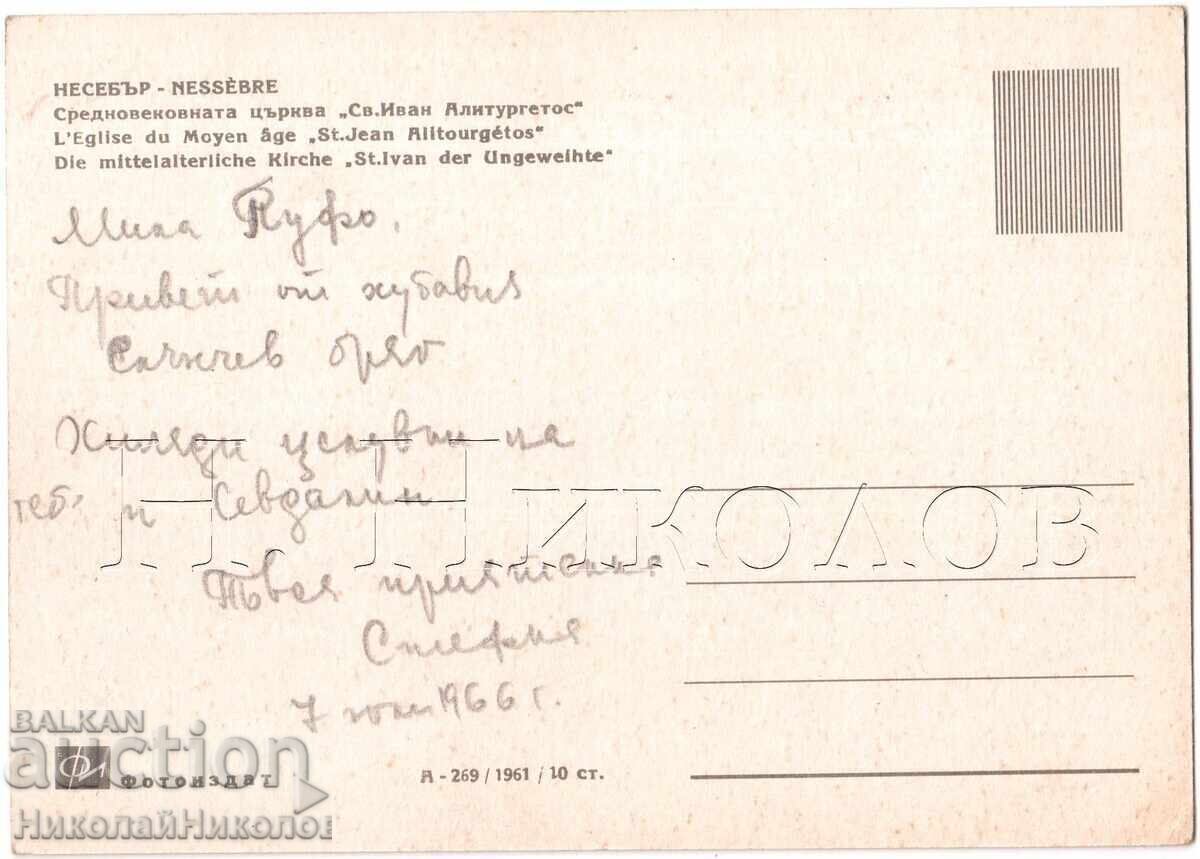 НЕСЕБЪР - NESSÈBRE
Средновековната църква „Св.Иван Алитургетос“
L'Eglise du Moyen âge „St.Jean Alitourgétos“
Die mittelalterliche Kirche „St.Ivan der Ungeweihte“
Мила
Привет от хубавия
Слънчев бряг
Хиляди целувки на
теб и
Твоя приятелка
7 1966 г.
Н. Николов
BALKAN
auction
Фотоиздат
А - 269 / 1961 / 10 ст.
НиколайНиколов